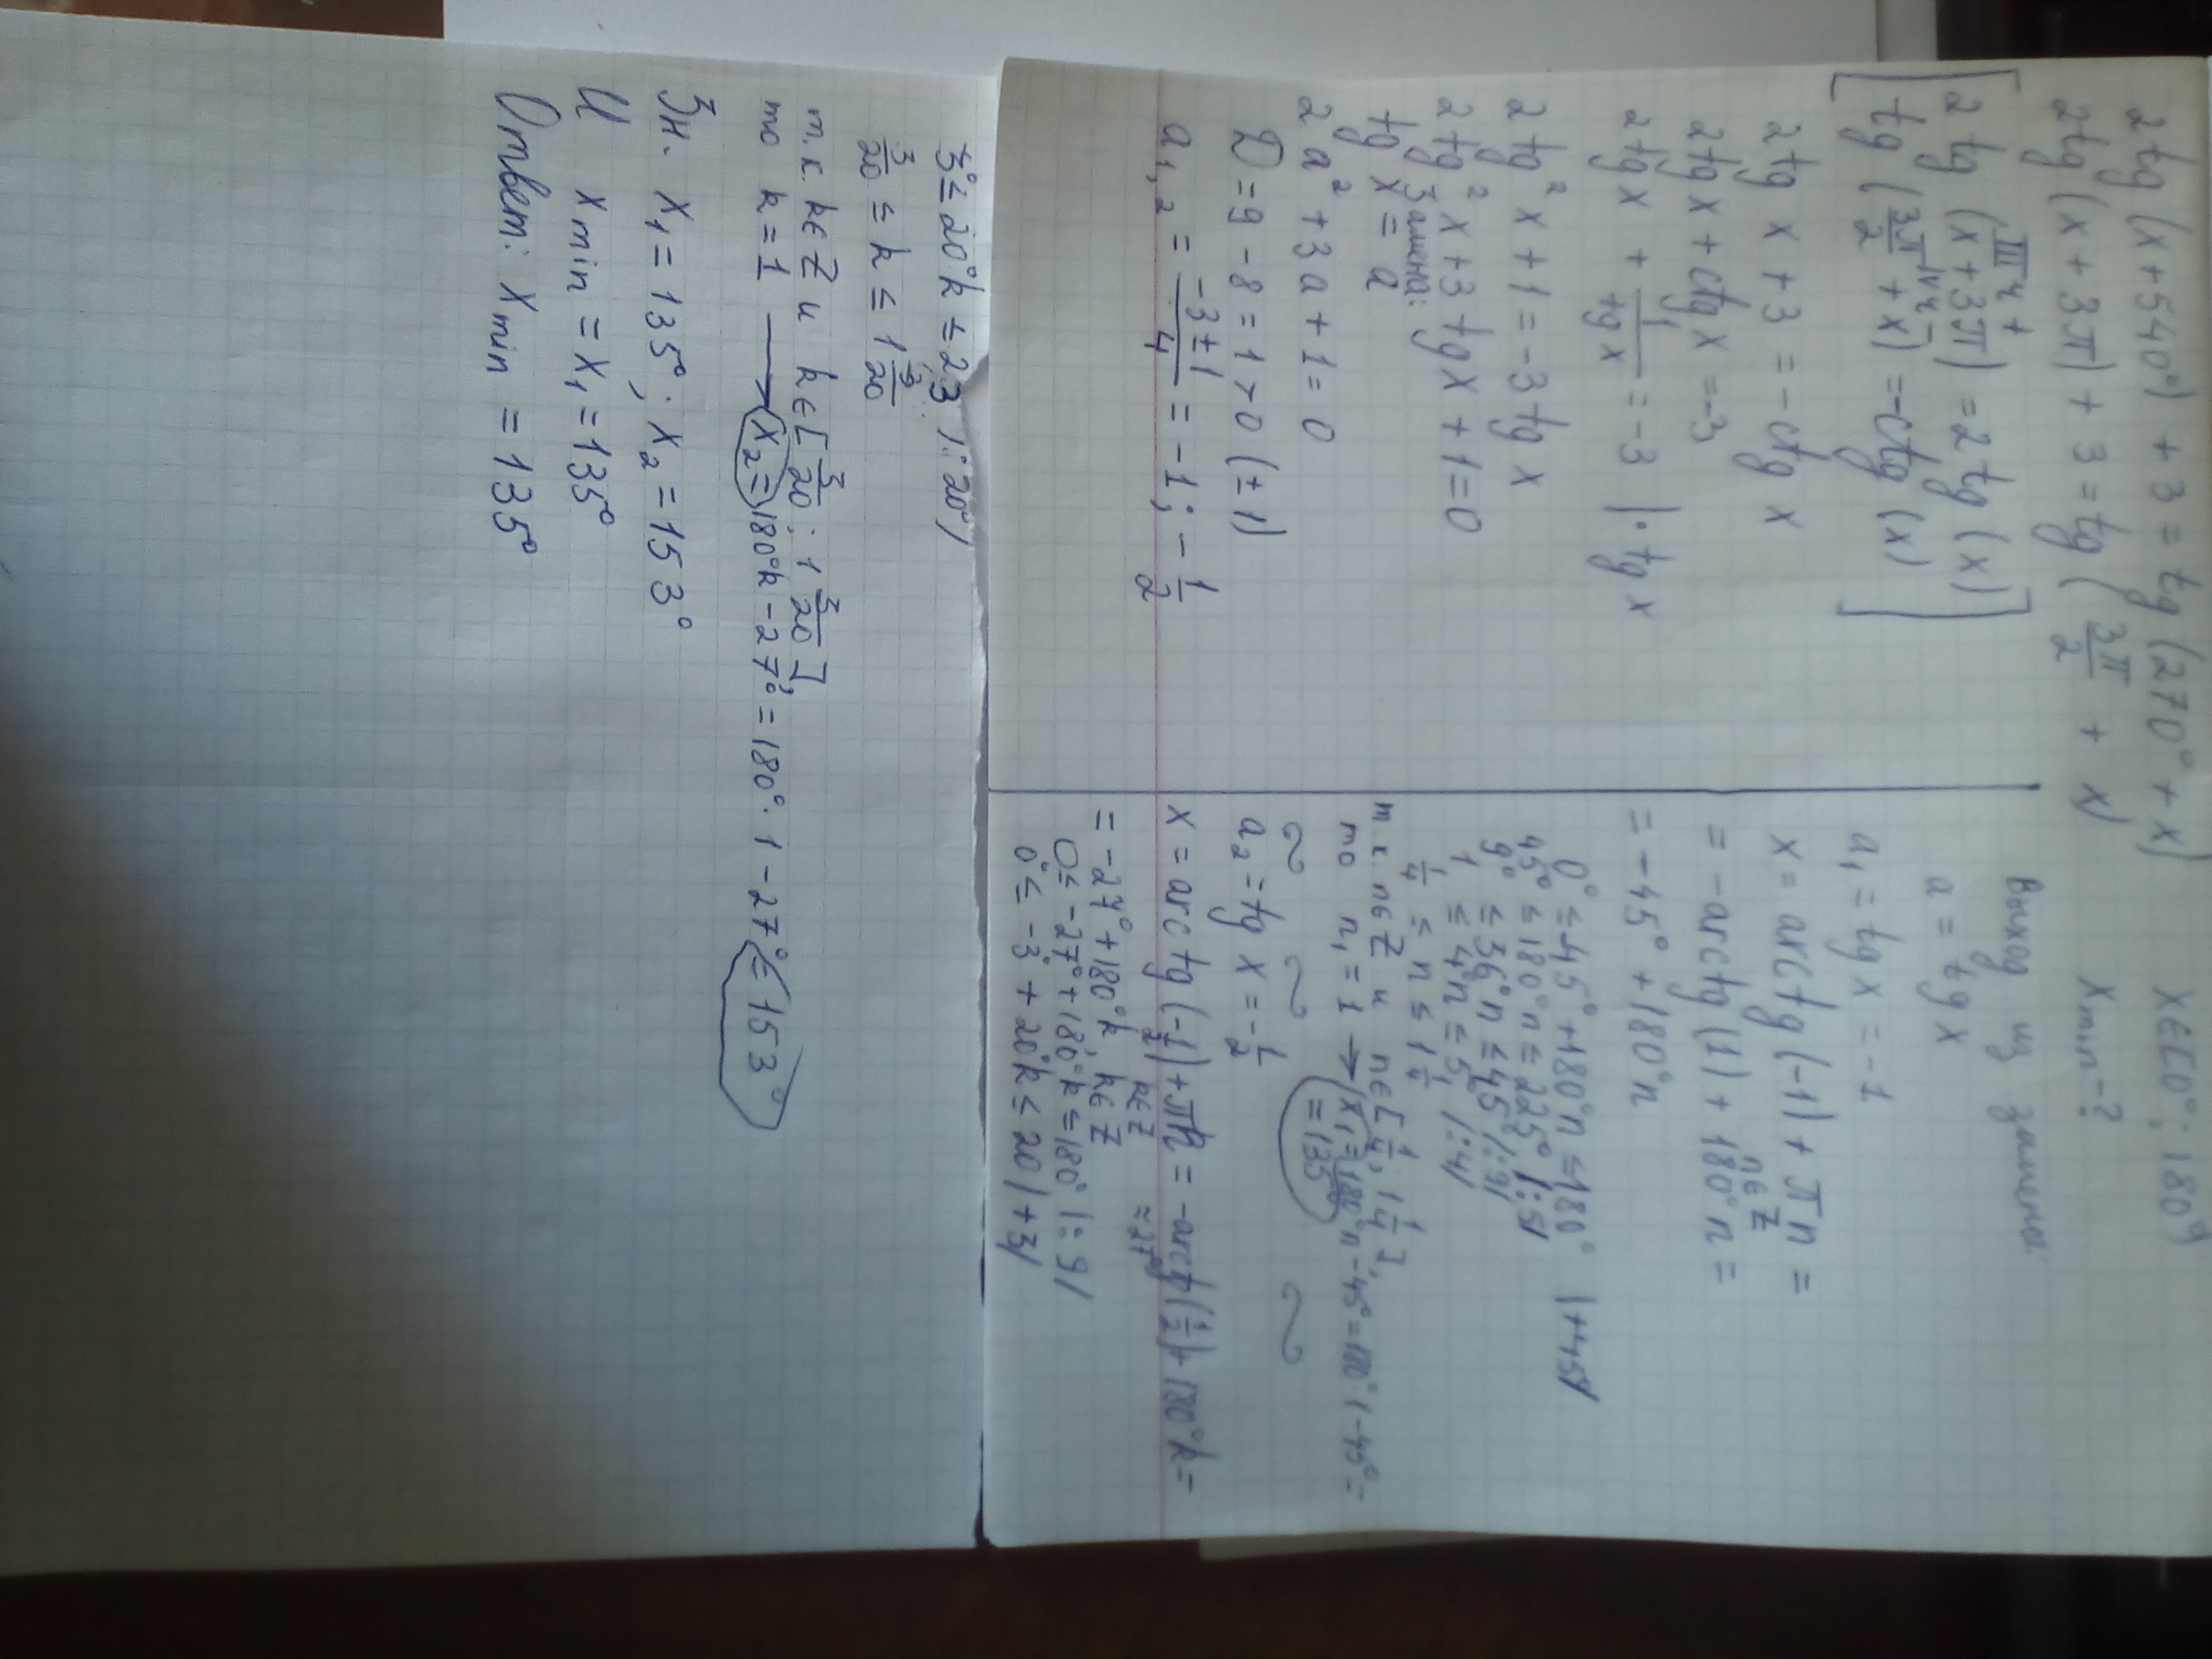 2tg (x+540°) + 3 = tg (270° + x)
x∈[0°; 180°]
2tg (x + 3π) + 3 = tg (3π/2 + x)
x min - ?
III ч +
[2 tg (x+3π) = 2 tg (x)
IV ч -
tg (3π/2 + x) = -ctg (x)]
2tg x + 3 = -ctg x
2tg x + ctg x = -3
2tg x + 1/tg x = -3 |· tg x
2 tg² x + 1 = -3 tg x
2 tg² x + 3 tg x + 1 = 0
Замена:
tg x = a
2a² + 3a + 1 = 0
D = 9 - 8 = 1 > 0 (±1)
a₁,₂ = (-3 ± 1)/4 = -1; -1/2
Выход из замены:
a = tg x
a₁ = tg x = -1
x = arctg (-1) + πn =
n∈Z
= -arctg (1) + 180°n =
= -45° + 180°n
0° ≤ -45° + 180°n ≤ 180° |+45°|
45° ≤ 180°n ≤ 225° |:5|
9° ≤ 36°n ≤ 45° |:9|
1 ≤ 4n ≤ 5 |:4|
1/4 ≤ n ≤ 1 1/4
т.к. n∈Z и n∈[1/4; 1 1/4],
то n₁ = 1 → x₁ = 180°n - 45° = 180°·1 - 45° =
= 135°
a₂ = tg x = -1/2
x = arctg (-1/2) + πk = -arctg (1/2) + 180°k =
k∈Z ≈ 27°
= -27° + 180°k, k∈Z
0 ≤ -27° + 180°k ≤ 180° |:9|
0° ≤ -3° + 20°k ≤ 20 |+3|
3° ≤ 20°k ≤ 23 |:20|
3/20 ≤ k ≤ 1 3/20
т.к. k∈Z и k∈[3/20; 1 3/20],
то k = 1 → x₂ = 180°k - 27° = 180°·1 - 27° = 153°
Зн. x₁ = 135°; x₂ = 153°
И x min = x₁ = 135°
Ответ: x min = 135°